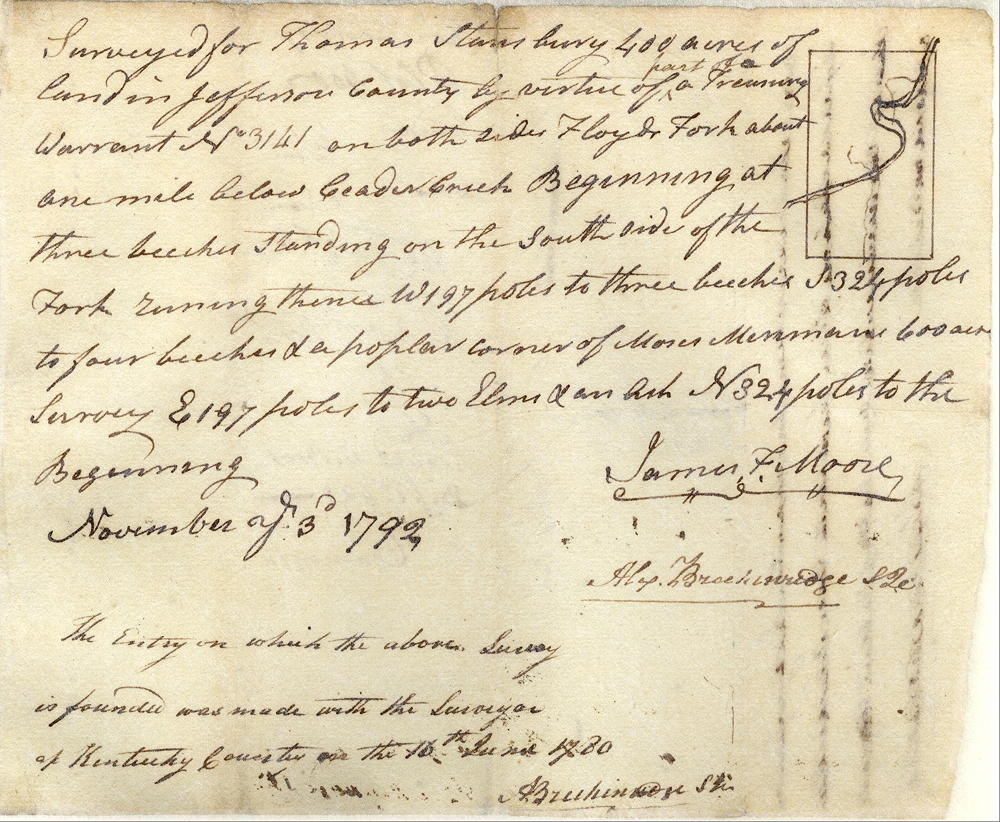 Surveyed for Thomas Stansbury 400 acres of
land in Jefferson County by virtue of part of a Treasury
Warrant No 3141 on both sides Floyds Fork about
one mile below Ceader Creek Beginning at
three beeches standing on the South side of the
Fork runing thence W 197 poles to three beeches S 324 poles
to four beeches & a poplar corner of Moses Merrmans 600 acre
Survey E 197 poles to two Elms & an Ash N 324 poles to the
Beginning
James F. Moore
November ye 3d 1792
Alex. Breckinridge
The Entry on which the above Survey
is founded was made with the Surveyor
of Kentucky County on the 16th June 1780
ABreckinridge